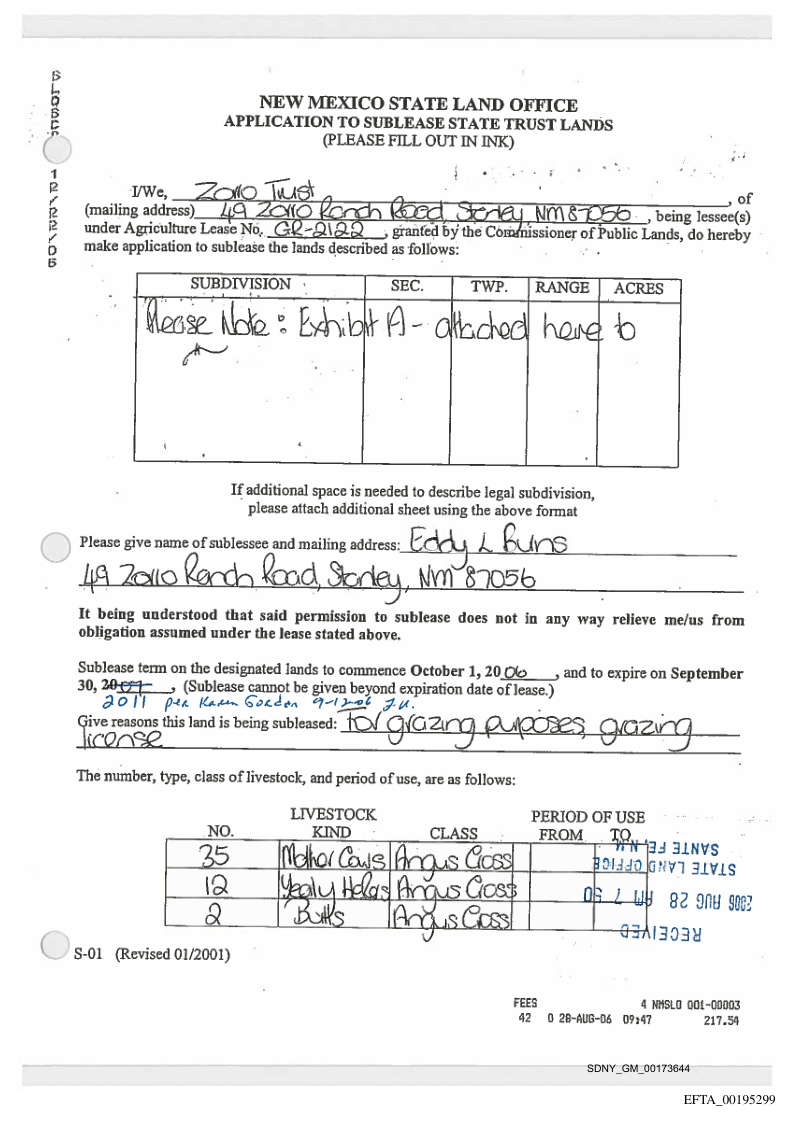 NEW MEXICO STATE LAND OFFICE
APPLICATION TO SUBLEASE STATE TRUST LANDS
(PLEASE FILL OUT IN INK)
I/We, Zorro Trust, of
(mailing address) 49 Zorro Ranch Road, Stanley, NM 87056, being lessee(s)
under Agriculture Lease No. GR-2122, granted by the Commissioner of Public Lands, do hereby
make application to sublease the lands described as follows:
SUBDIVISION SEC. TWP. RANGE ACRES
Please Note: Exhibit A - attached here to
If additional space is needed to describe legal subdivision,
please attach additional sheet using the above format
Please give name of sublessee and mailing address: Eddy L Burns
49 Zorro Ranch Road, Stanley, NM 87056
It being understood that said permission to sublease does not in any way relieve me/us from
obligation assumed under the lease stated above.
Sublease term on the designated lands to commence October 1, 2006, and to expire on September
30, 20, (Sublease cannot be given beyond expiration date of lease.)
2011 per Karen Gordon 9-12-06 J.U.
Give reasons this land is being subleased: For grazing purposes, grazing
license
The number, type, class of livestock, and period of use, are as follows:
LIVESTOCK PERIOD OF USE
NO. KIND CLASS FROM TO
35 Mother Cows Angus Cross
12 Angus Cross
2 Angus Cross
RECEIVED
2006 AUG 28 AM 7 50
STATE LAND OFFICE
SANTE FE, N.M.
S-01 (Revised 01/2001)
FEES 4 NMSLO 001-00003
42 0 28-AUG-06 09:47 217.54
SDNY_GM_00173644
EFTA_00195299